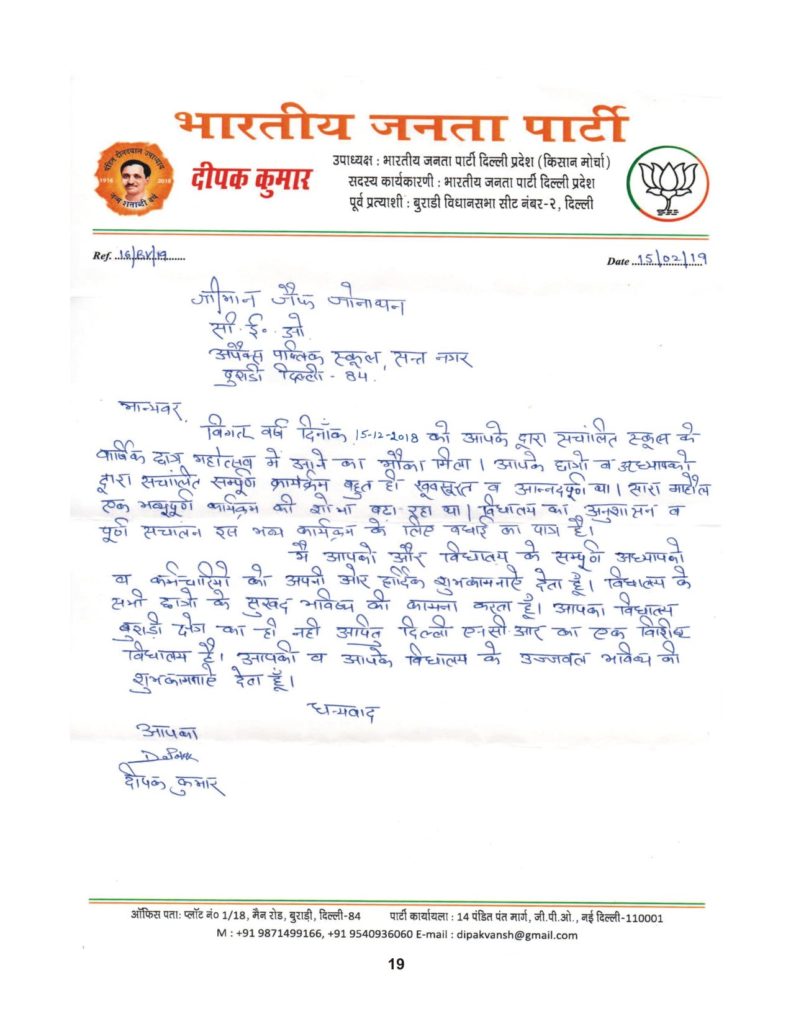 भारतीय जनता पार्टी
पंडित दीनदयाल उपाध्याय
1916 2016
जन्म शताब्दी वर्ष
दीपक कुमार
उपाध्यक्ष : भारतीय जनता पार्टी दिल्ली प्रदेश (किसान मोर्चा)
सदस्य कार्यकारणी : भारतीय जनता पार्टी दिल्ली प्रदेश
पूर्व प्रत्याशी : बुराडी विधानसभा सीट नंबर-२, दिल्ली
Ref. 16/BV/19
Date 15/02/19
श्रीमान जैफ जोनाथन
सी. ई. ओ.
अपैक्स पब्लिक स्कूल, सन्त नगर
बुराडी दिल्ली - 84.
मान्यवर,
विगत वर्ष दिनाँक 15-12-2018 को आपके द्वारा सचांलित स्कूल के
वार्षिक छात्र महोत्सव में आने का मौका मिला। आपके छात्रो व अध्यापको
द्वारा सचांलित सम्पूर्ण कार्यक्रम बहुत ही खूबसूरत व आन्नदपूर्ण था। सारा माहौल
एक भव्यपूर्ण कार्यक्रम की शोभा बढा रहा था। विधालय का अनुशासन व
पूर्ण सचांलन इस भव्य कार्यक्रम के लिए बधाई का पात्र है।
मै आपको और विधालय के सम्पूर्ण अध्यापको
व कर्मचारियो को अपनी ओर हार्दिक शुभकामनाऐ देता हूँ। विधालय के
सभी छात्रो के सुखद भविष्य की कामना करता हूँ। आपका विधालय
बुराड़ी क्षेत्र का ही नही अपितु दिल्ली एन.सी.आर का एक विशिष्ठ
विधालय है। आपकी व आपके विधालय के उज्जवल भविष्य की
शुभकामनाऐ देता हूँ।
धन्यवाद
आपका
Deepak
दीपक कुमार
ऑफिस पता: प्लॉट नं० 1/18, मैन रोड, बुराड़ी, दिल्ली-84 पार्टी कार्यायला : 14 पंडित पंत मार्ग, जी.पी.ओ., नई दिल्ली-110001
M : +91 9871499166, +91 9540936060 E-mail : dipakvansh@gmail.com
19